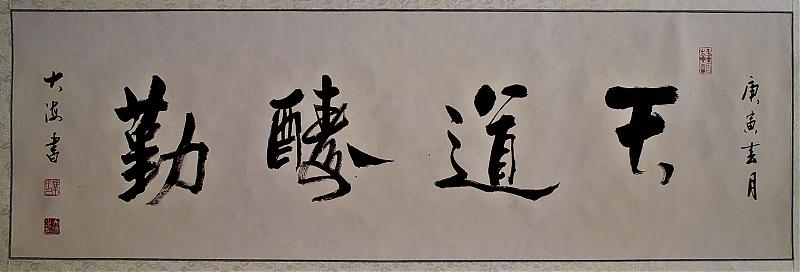 庚寅春月
天道醻勤
大海書